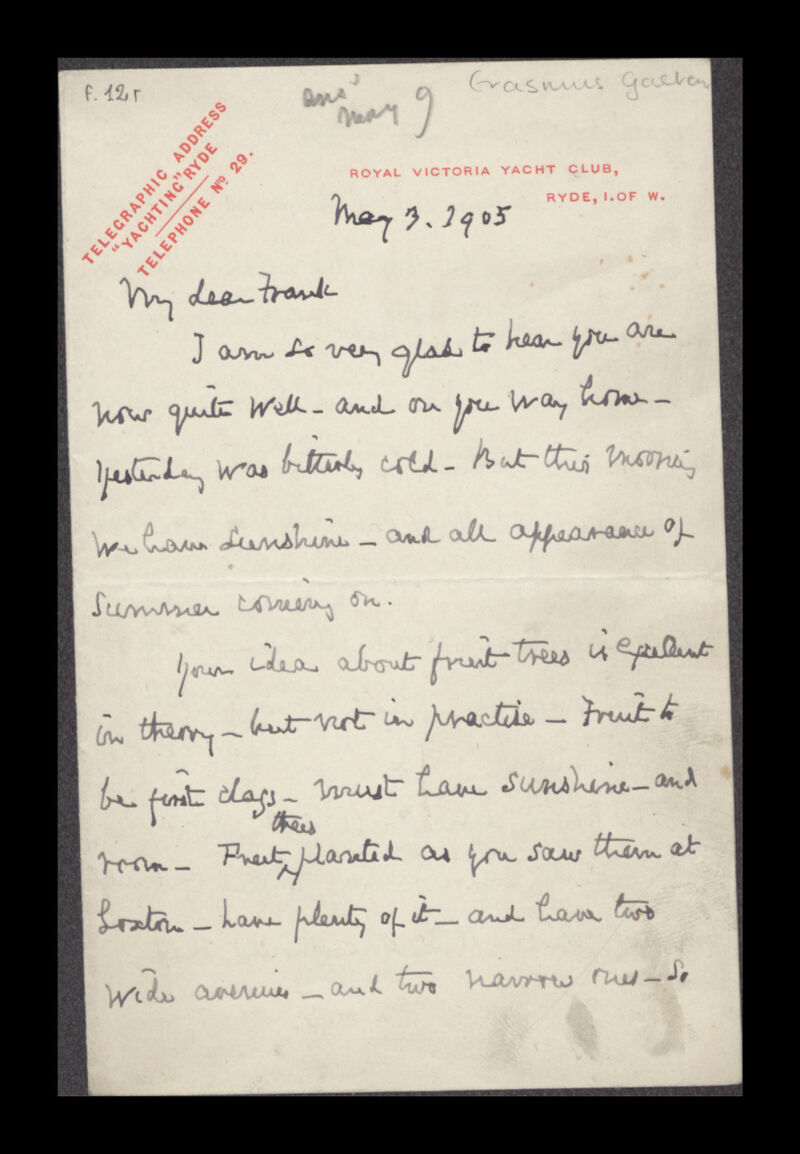 f. 12r
ans^d
May 9
Erasmus Galton
TELEGRAPHIC ADDRESS
"YACHTING" RYDE
TELEPHONE Nº 29.
ROYAL VICTORIA YACHT CLUB,
RYDE, I. OF W.
May 3. 1905
My dear Frank
I am so very glad to hear you are
now quite well - and on you way home -
Yesterday was bitterly cold - But this morning
we have sunshine - and all appearance of
Summer coming on.
Your idea about fruit trees is excellent
in theory - but not in practise - Fruit to
be first class - must have sunshine - and
trees
room - Fruit planted as you saw them at
Loxton - have plenty of it - and have two
wide avenues - and two narrow ones - So